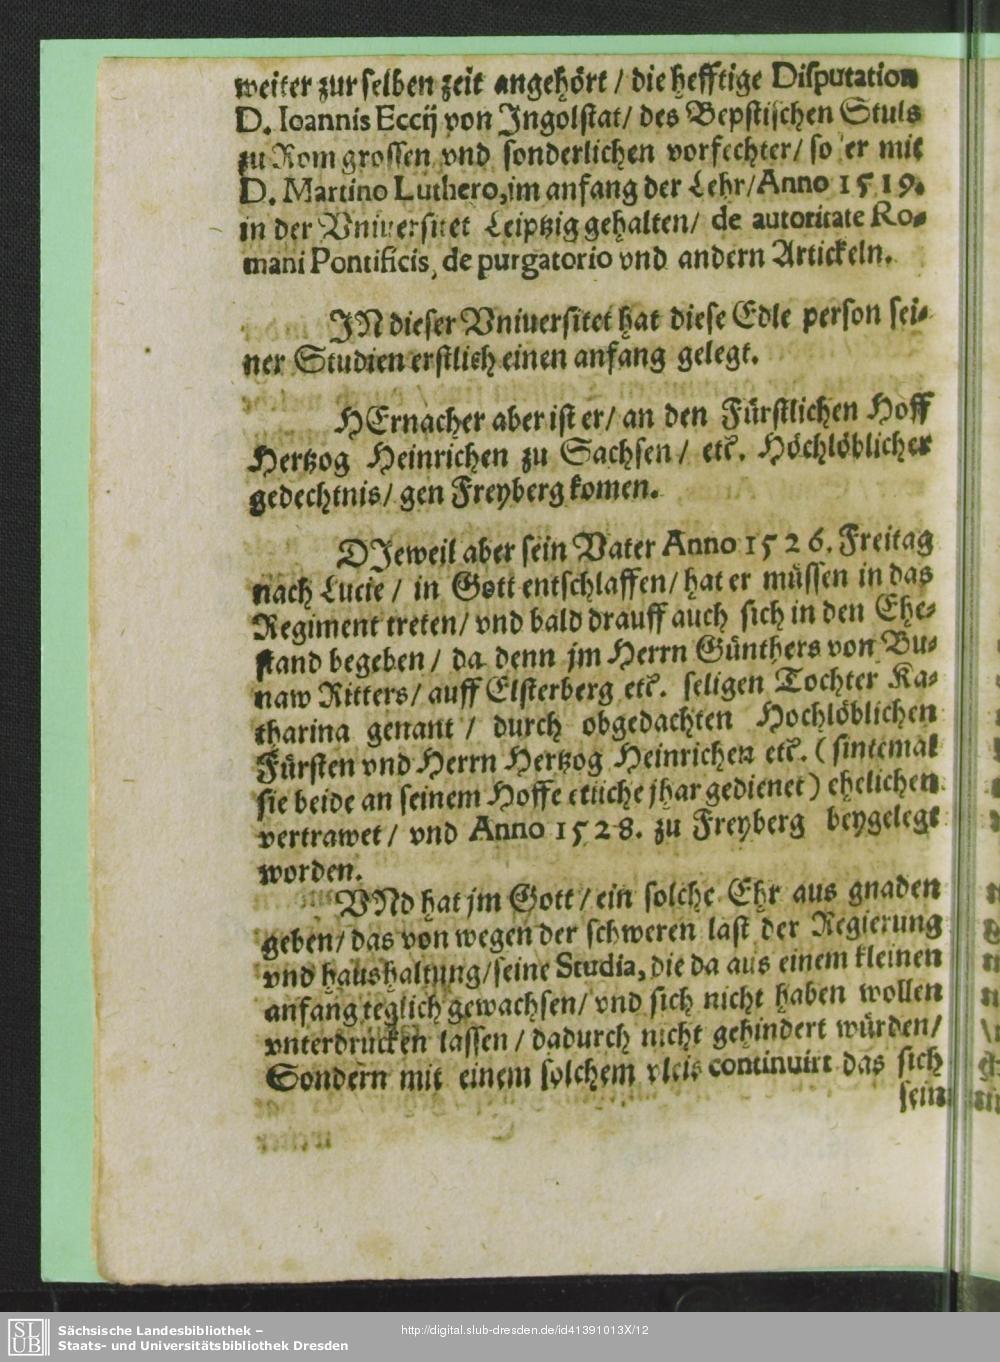 weiter zur selben zeit angehört / die hefftige Disputation
D. Ioannis Eccij von Jngolstat / des Bepstischen Stuls
zu Rom grossen vnd sonderlichen vorfechter / so er mit
D. Martino Luthero, im anfang der Lehr / Anno 1519.
in der Vniuersitet Leiptzig gehalten / de autoritate Ro-
mani Pontificis, de purgatorio vnd andern Artickeln.
JN dieser Vniuersitet hat diese Edle person sei-
ner Studien erstlich einen anfang gelegt.
HErnacher aber ist er / an den Fürstlichen Hoff
Hertzog Heinrichen zu Sachsen / etc. Höchlöblicher
gedechtnis / gen Freyberg komen.
DJeweil aber sein Vater Anno 1526. Freitag
nach Lucie / in Gott entschlaffen / hat er müssen in das
Regiment treten / vnd bald drauff auch sich in den Ehe-
stand begeben / da denn jm Herrn Günthers von Bu-
naw Ritters / auff Elsterberg etc. seligen Tochter Ka-
tharina genant / durch obgedachten Hochlöblichen
Fürsten vnd Herrn Hertzog Heinrichen etc. (sintemal
sie beide an seinem Hoffe etliche jhar gedienet) ehelichen
vertrawet / vnd Anno 1528. zu Freyberg beygelegt
worden.
VNd hat jm Gott / ein solche Ehr aus gnaden
geben / das von wegen der schweren last der Regierung
vnd haushaltung / seine Studia, die da aus einem kleinen
anfang teglich gewachsen / vnd sich nicht haben wollen
vnterdrücken lassen / dadurch nicht gehindert würden /
Sondern mit einem solchem vleis continuirt das sich
sein
SLUB
Sächsische Landesbibliothek –
Staats- und Universitätsbibliothek Dresden
http://digital.slub-dresden.de/id41391013X/12